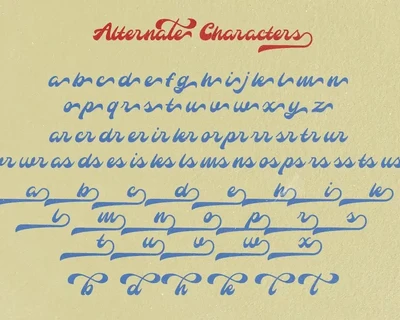 Alternate Characters
a b c d e f g h i j k l m n
o p q r s t u v w x y z
ar cr dr er ir kr or pr rr sr tr ur
wr as ds es is ks ls ms ns os ps rs ss ts us
a b c d e h i k
l m n o p r s
t u v w x
b d h k l t